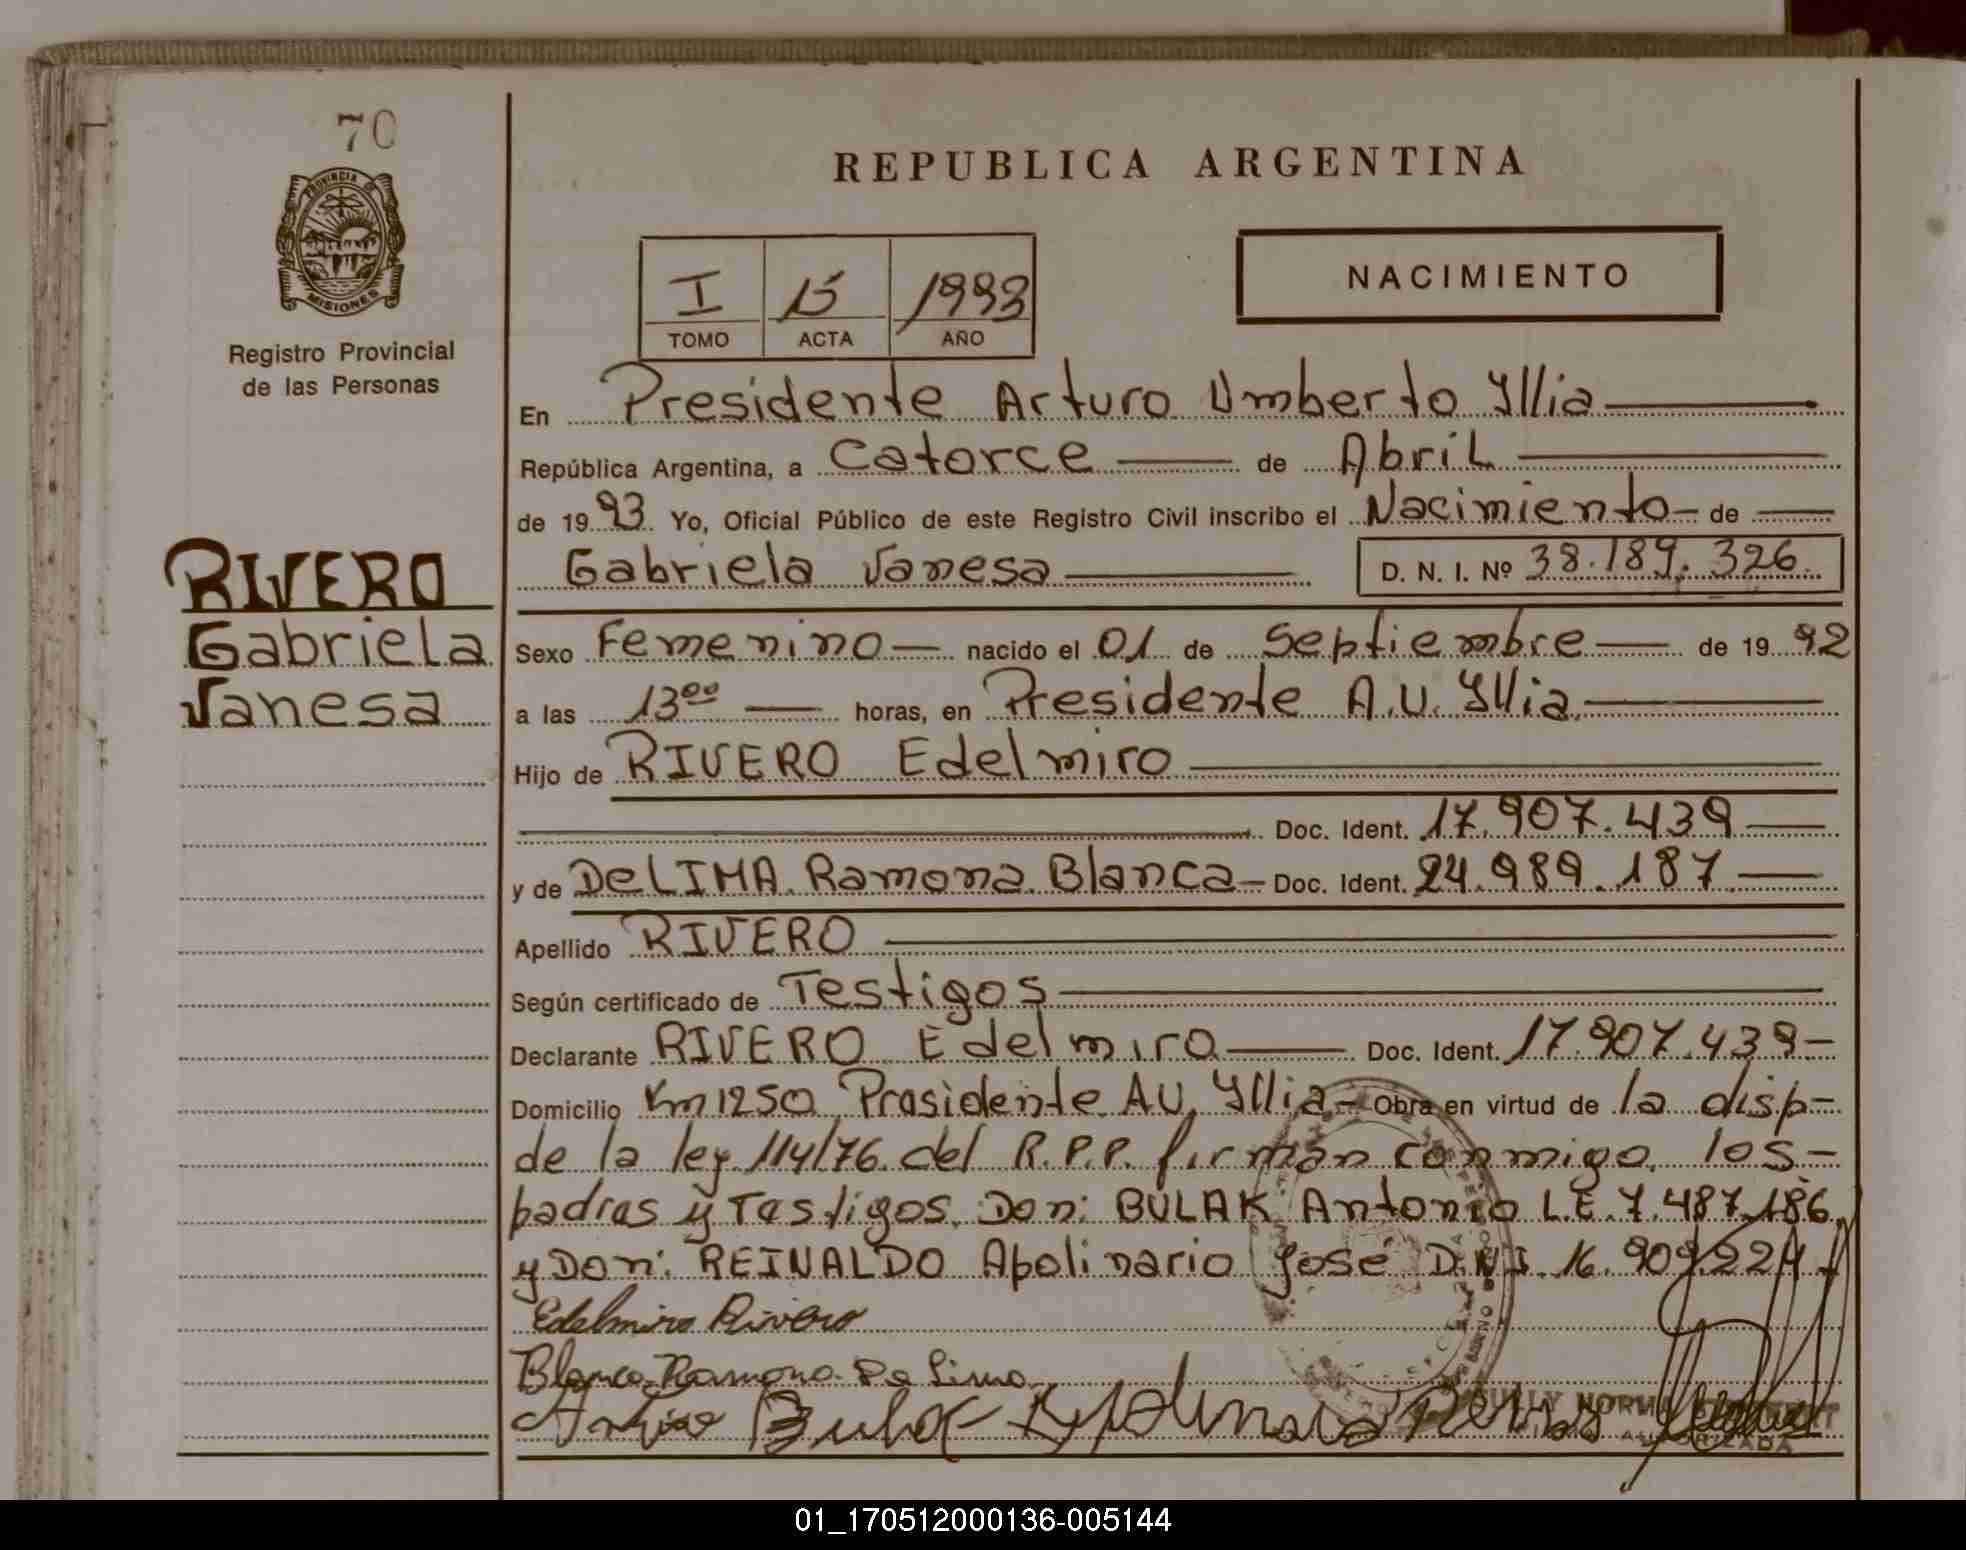 70
PROVINCIA DE
MISIONES
Registro Provincial
de las Personas
RIVERO
Gabriela
Vanesa
REPUBLICA ARGENTINA
I 15 1993
TOMO ACTA AÑO
NACIMIENTO
En Presidente Arturo Umberto Yllia
República Argentina, a Catorce de Abril
de 1993 Yo, Oficial Público de este Registro Civil inscribo el Nacimiento de
Gabriela Vanesa D. N. I. Nº 38.189.326
Sexo Femenino nacido el 01 de Septiembre de 1992
a las 13⁰⁰ horas, en Presidente A.U. Yllia
Hijo de RIVERO Edelmiro
Doc. Ident. 17.907.439
y de DeLIMA Ramona Blanca Doc. Ident. 24.989.187
Apellido RIVERO
Según certificado de Testigos
Declarante RIVERO Edelmiro Doc. Ident. 17.907.439
Domicilio Km 1250 Presidente AU. Yllia Obra en virtud de la disp-
de la ley 114/76 del R.P.P. firman conmigo los
padres y Testigos Don: BULAK Antonio L.E. 7.487.186
y Don: REINALDO Apolinario José D.N.I. 16.909.224
Edelmiro Rivero
Blanca Ramona De Lima
NORMA
AUTORIZADA
01_170512000136-005144